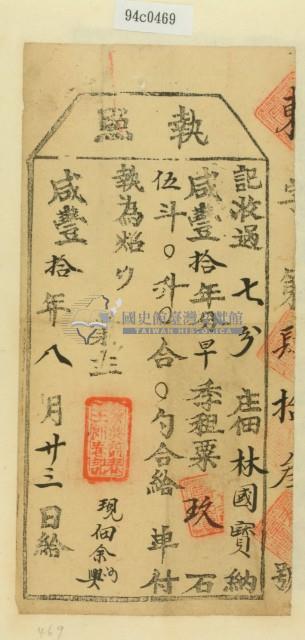 94c0469
執照
記收過七分庄佃林國寶納
咸豐拾年分早季租粟玖石
伍斗○升○合○勺合給車付
執為炤
咸豐拾年八月廿三日給
現佃余
興
國史館臺灣文獻館
TAIWAN HISTORICA
東字第肆拾叁號
469